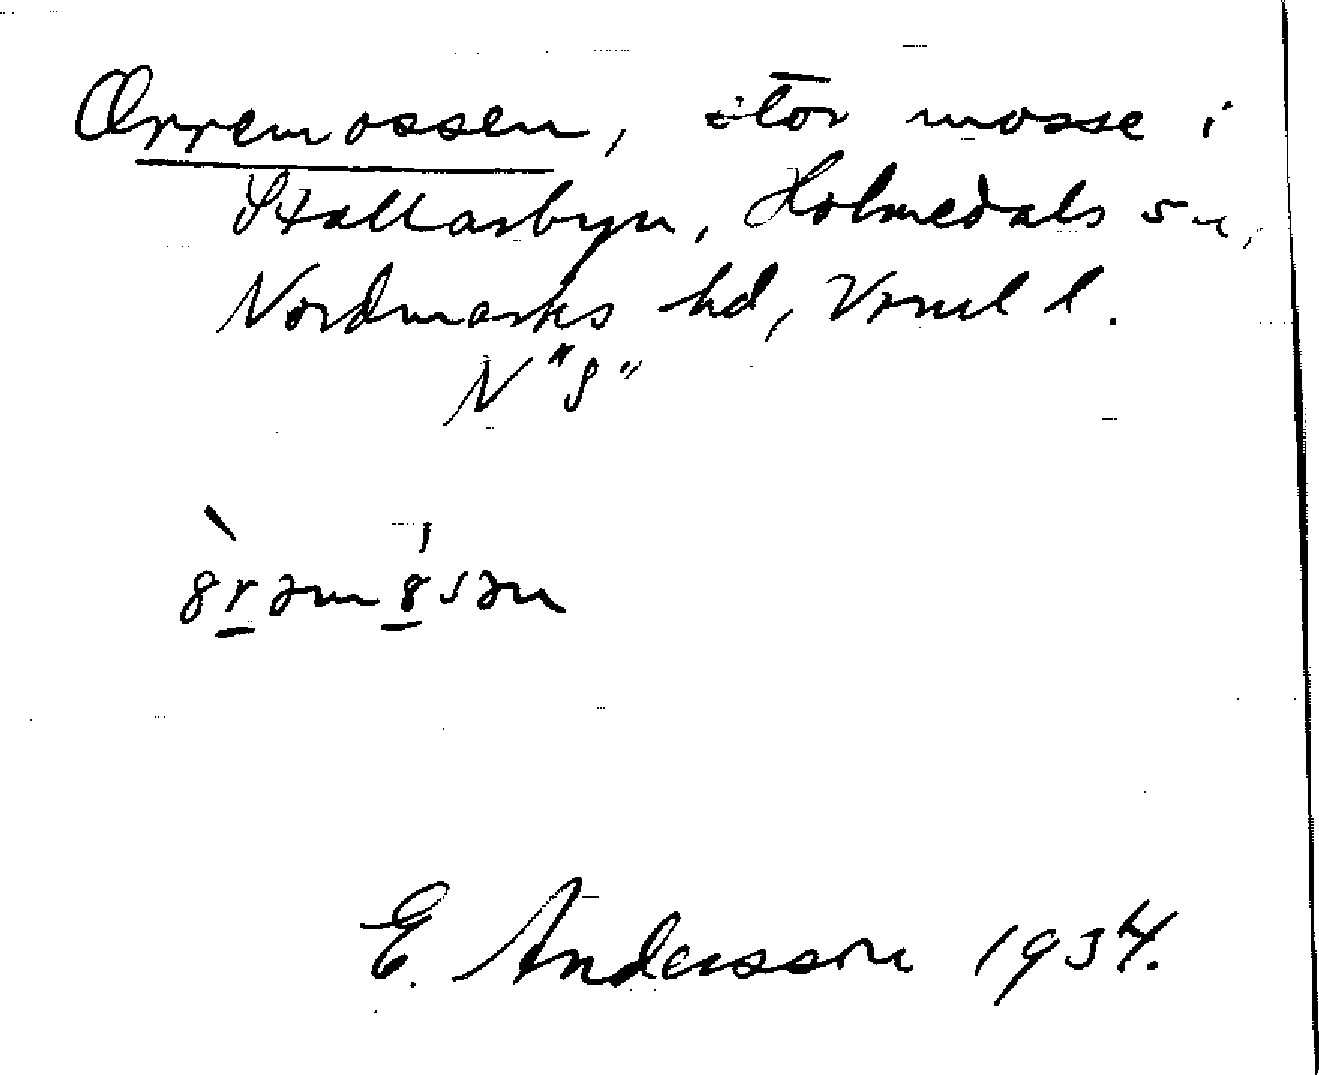 Orremossen, stor mosse i
Stallarbyn, Holmedals sn,
Nordmarks hd, Vrml l.
N "S"
8̀rəm8̍sən
E. Andersson 1934.